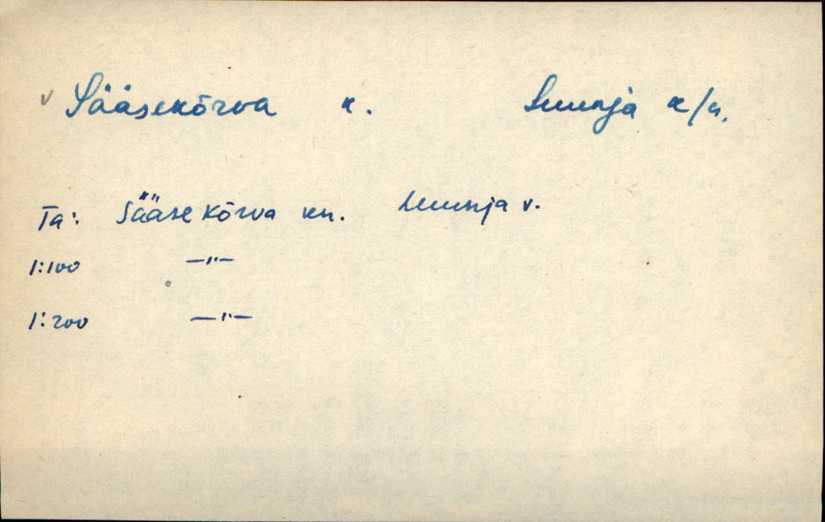 v Sääsekõrva k. Luunja k/n.
Ta: Sääsekõrva kn. Luunja v.
1:100 —"—
1:200 —"—